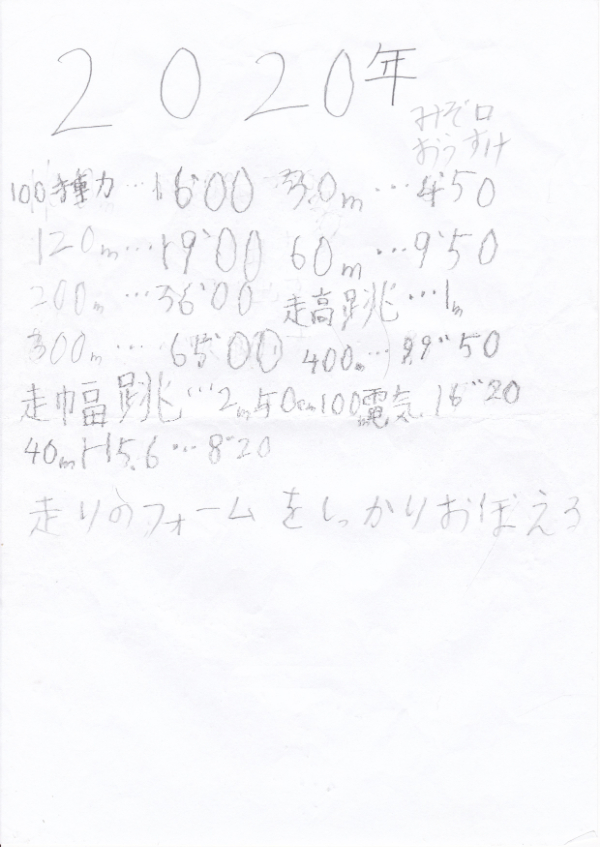 2020年
みぞ口
おうすけ
100手動…16"00 30m…4"50
120m…19"00 60m…9"50
200m…36"00 走高跳…1m
300m…65"00 400m…99"50
走巾福跳…2m50cm100電気16"20
40mH15.6…8"20
走りのフォームをしっかりおぼえろ